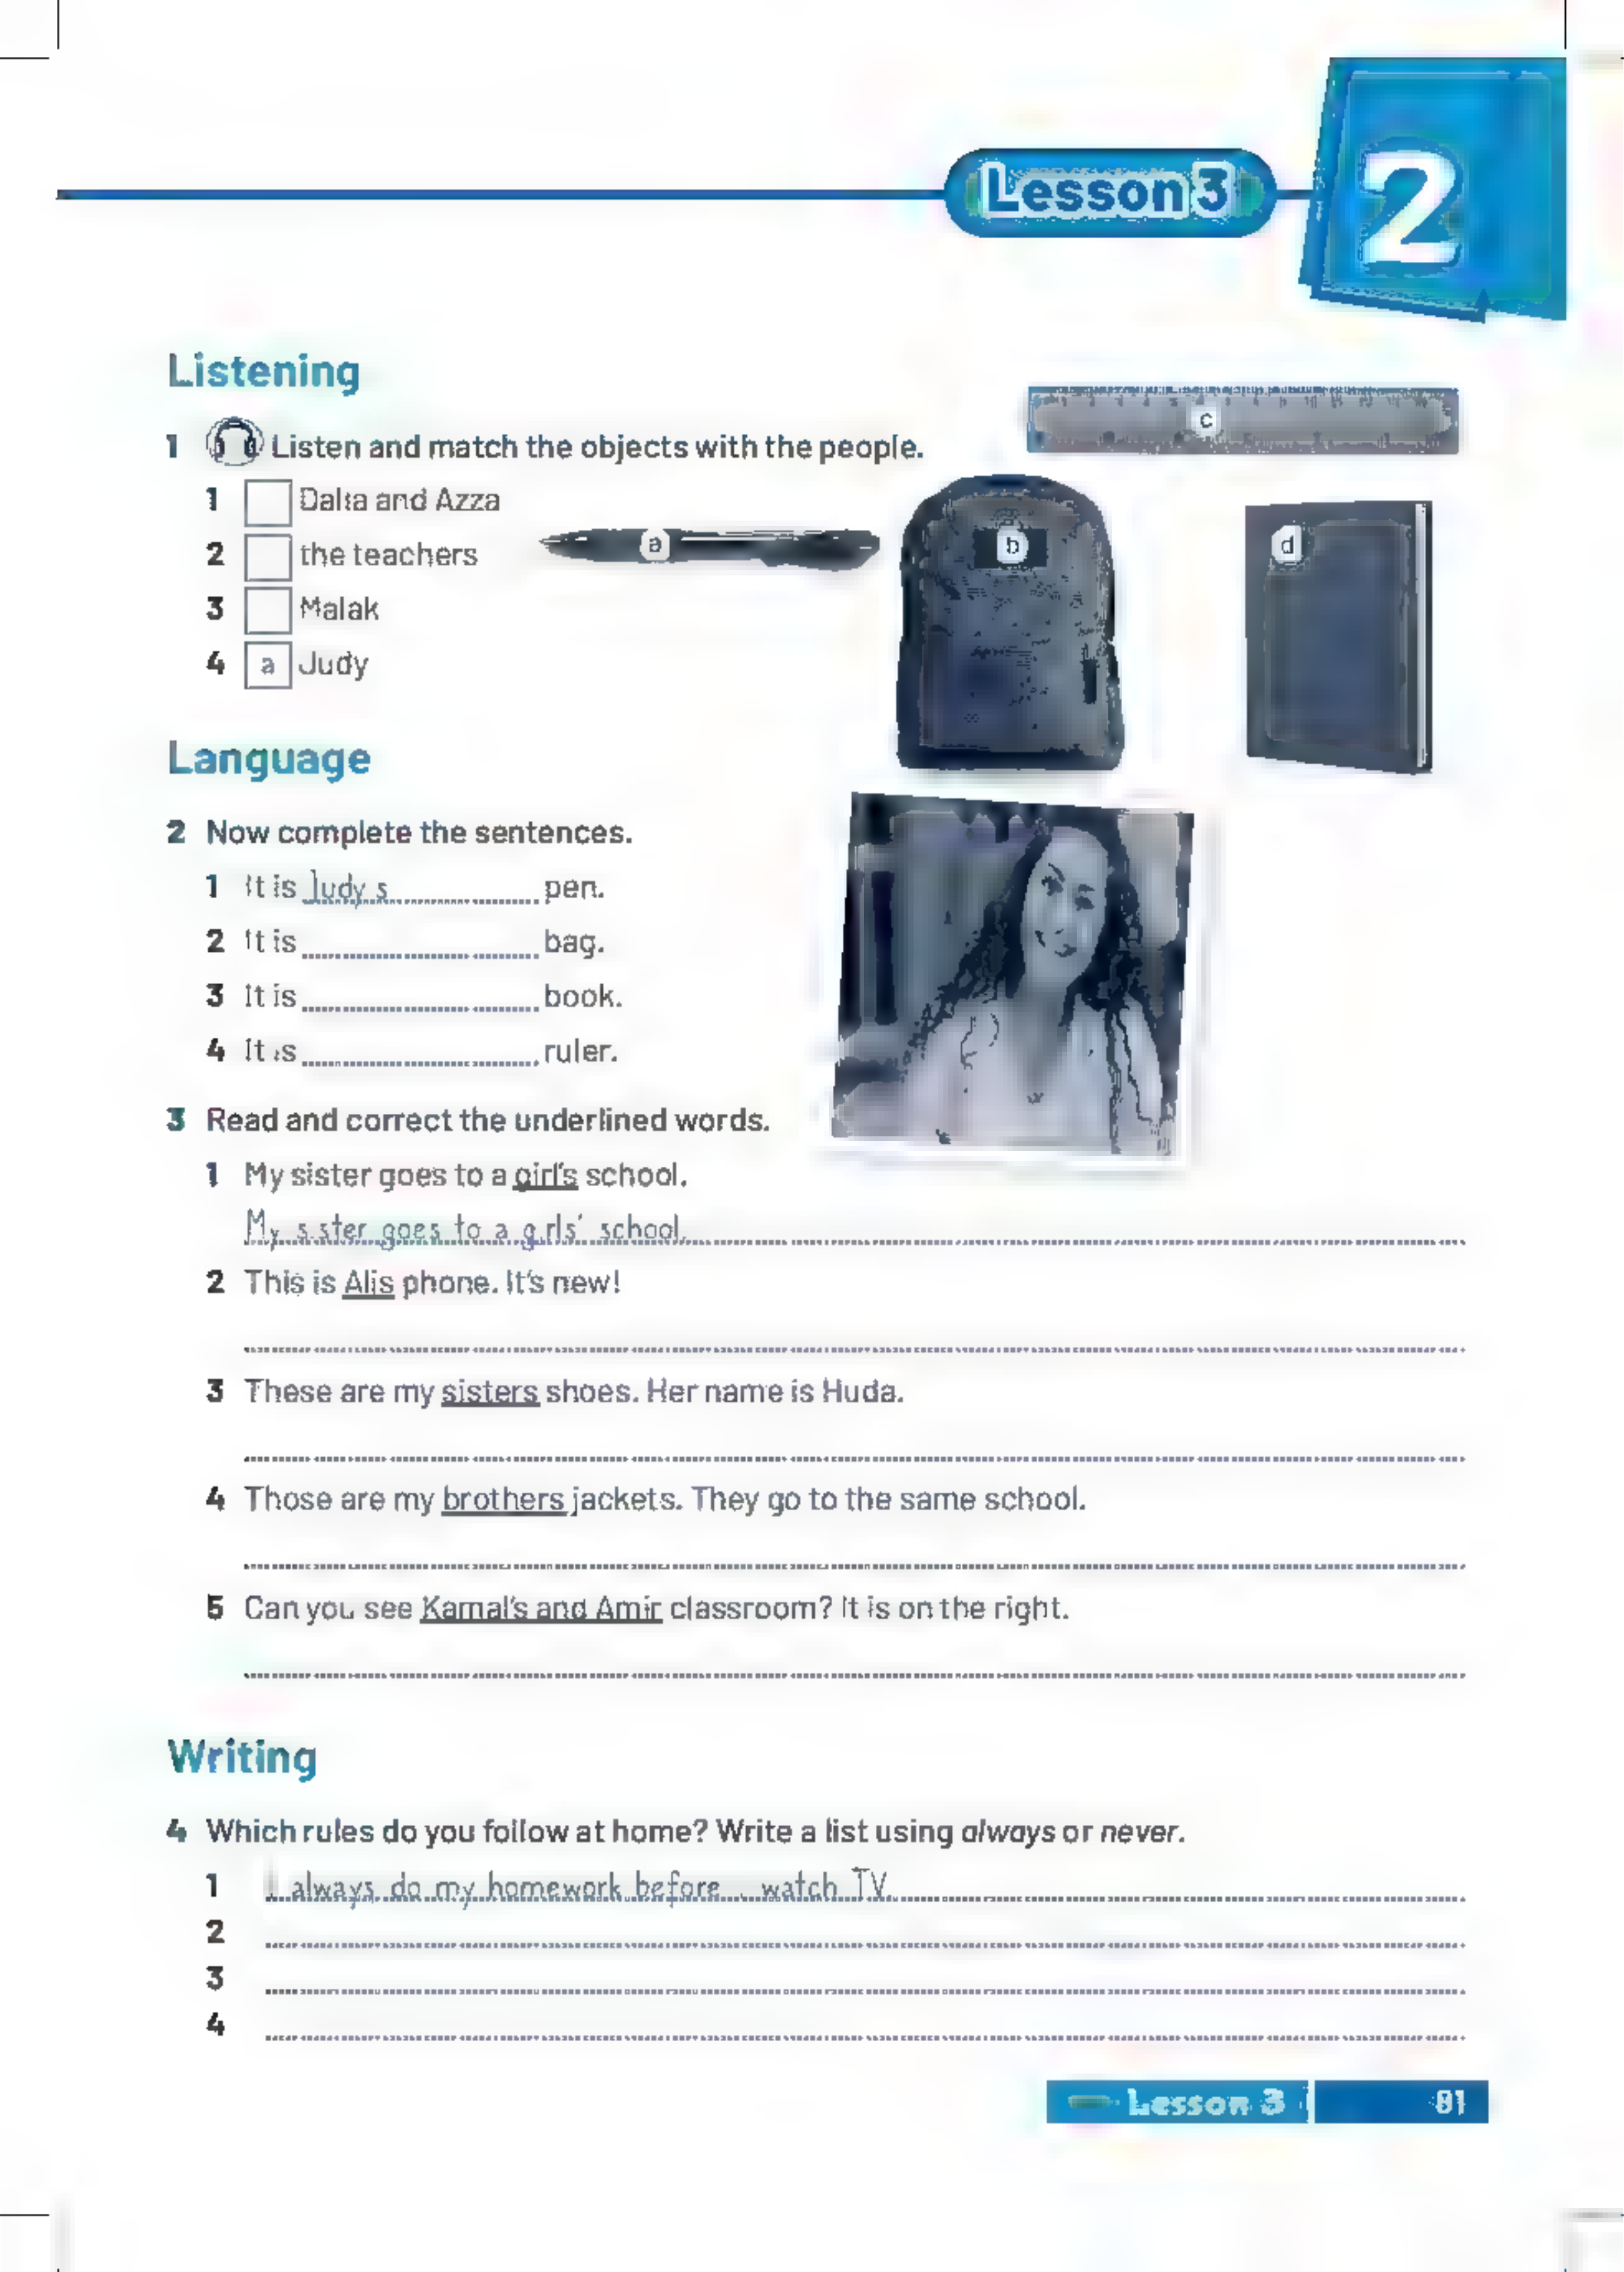 Lesson 3
2
Listening
1 Listen and match the objects with the people.
c
1 Dalia and Azza
2 the teachers
a
b
d
3 Malak
4 a Judy
Language
2 Now complete the sentences.
1 It is Judy's pen.
2 It is bag.
3 It is book.
4 It is ruler.
3 Read and correct the underlined words.
1 My sister goes to a girl's school.
My sister goes to a girls' school.
2 This is Alis phone. It's new!
3 These are my sisters shoes. Her name is Huda.
4 Those are my brothers jackets. They go to the same school.
5 Can you see Kamal's and Amir classroom? It is on the right.
Writing
4 Which rules do you follow at home? Write a list using always or never.
1 I always do my homework before I watch TV.
2
3
4
Lesson 3 81